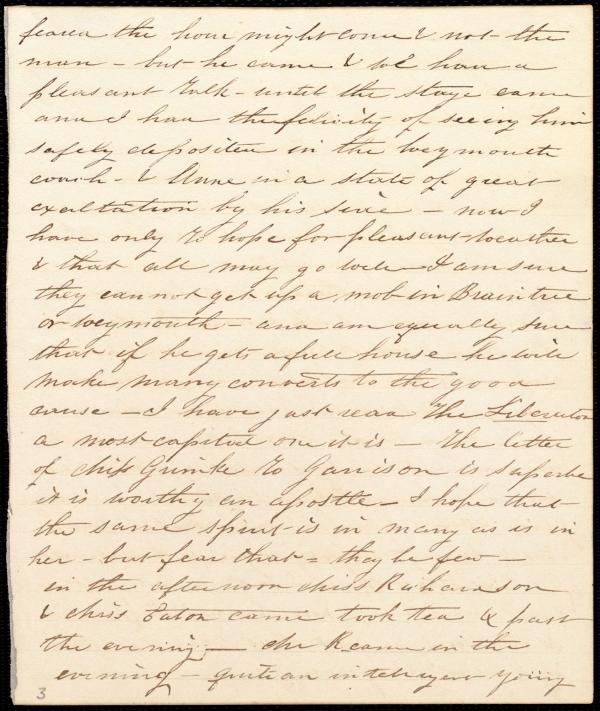 feared the hour might come & not the
man - but he came & we had a
pleasant talk - until the stage came
and I had the felicity of seeing him
safely deposited in the Weymouth
coach - & Anne in a state of great
exaltation by his side - now I
have only to hope for pleasant weather
& that all may go well - I am sure
they can not get up a mob in Braintree
or Weymouth - and am equally sure
that if he gets a full house he will
make many converts to the good
cause - I have just read the Liberator
a most capital one it is - the letter
of Miss Grimke to Garrison is superbe
it is worthy an apostle - I hope that
the same spirit is in many as is in
her - but fear that = they be few -
in the afternoon Miss Richardson
& Miss Eaton came took tea & past
the evening - Mr R came in the
evening - quite an inteligent young
3